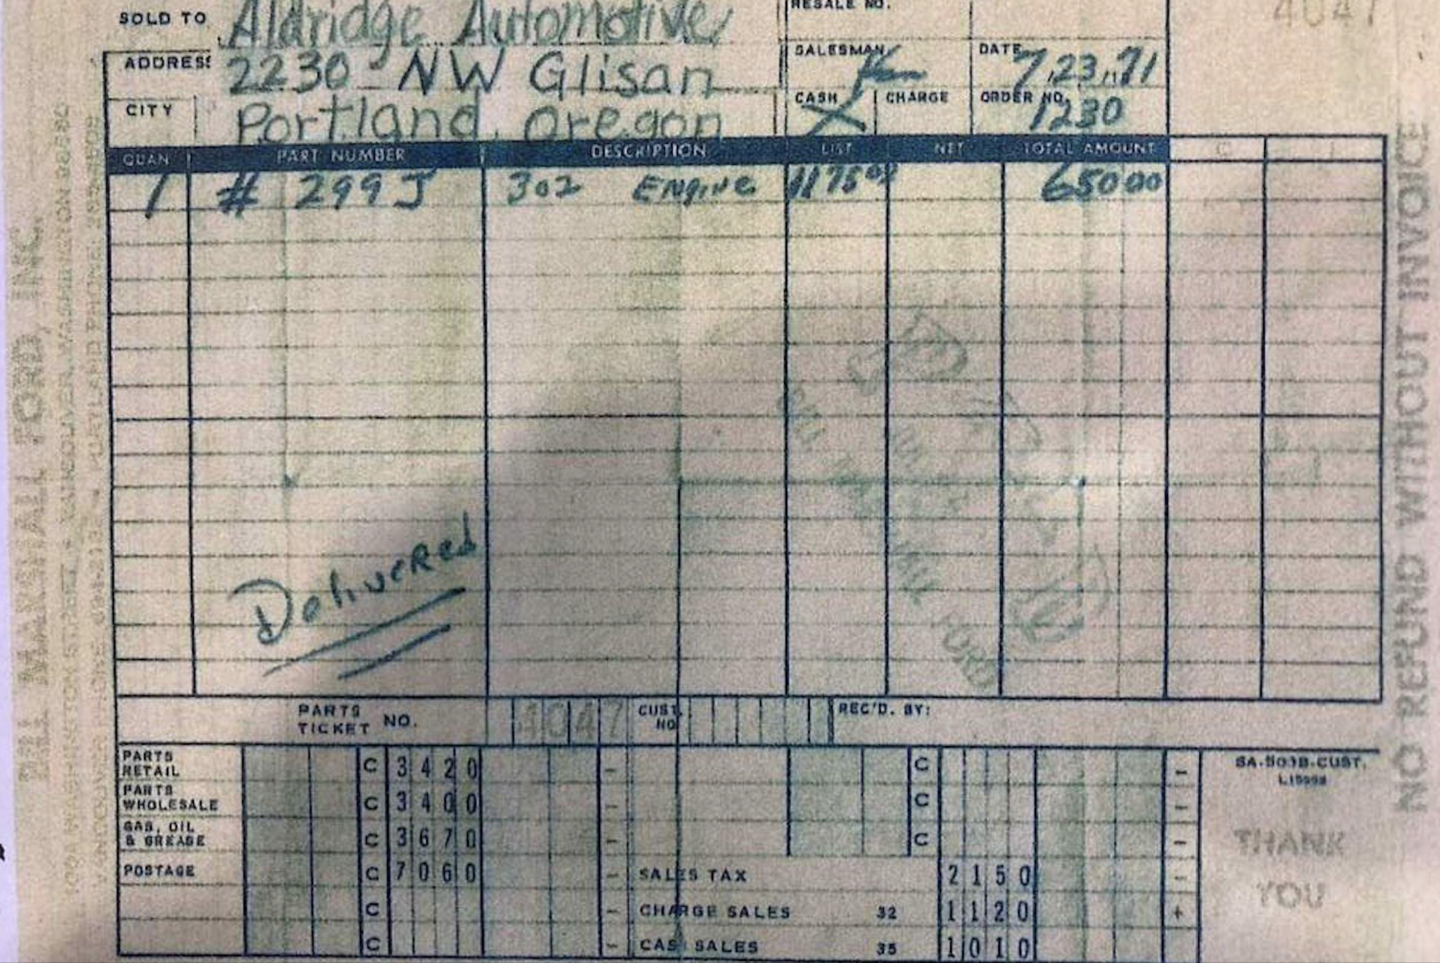 SOLD TO Aldridge Automotive
RESALE NO.
4047
ADDRESS 2230 - NW Glisan
SALESMAN Ken
DATE 7,23,71
CITY Portland, Oregon
CASH X CHARGE
ORDER NO. 1230
QUAN PART NUMBER DESCRIPTION LIST NET TOTAL AMOUNT
1 # 299J 302 ENGINE 1175 00 650 00
Delivered
FORD
PARTS TICKET NO. 4047 CUST. NO. REC'D. BY:
PARTS RETAIL C 3420 - C -
PARTS WHOLESALE C 3400 - C -
GAS, OIL & GREASE C 3670 - C -
POSTAGE C 7060 - SALES TAX 2150 -
C - CHARGE SALES 32 1120 +
C - CASH SALES 35 1010
SA-503B-CUST.
THANK
YOU
BILL MARSHALL FORD, INC.
NO REFUND WITHOUT INVOICE